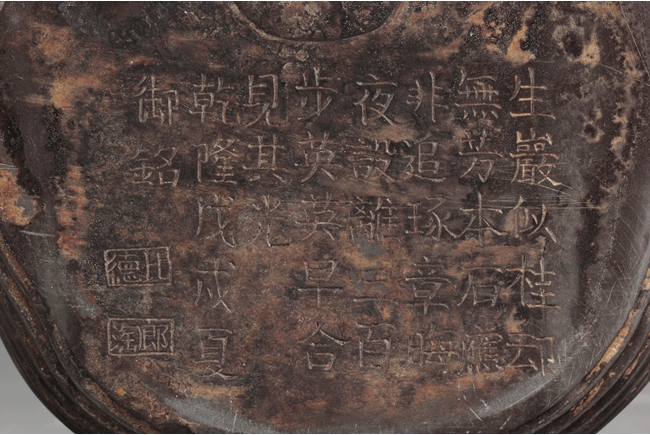 生巖似桂却
無芳本石應
非追琢章晦
夜設離三百
步英英早合
見其光
乾隆戊戌夏
御銘
比德
朗潤